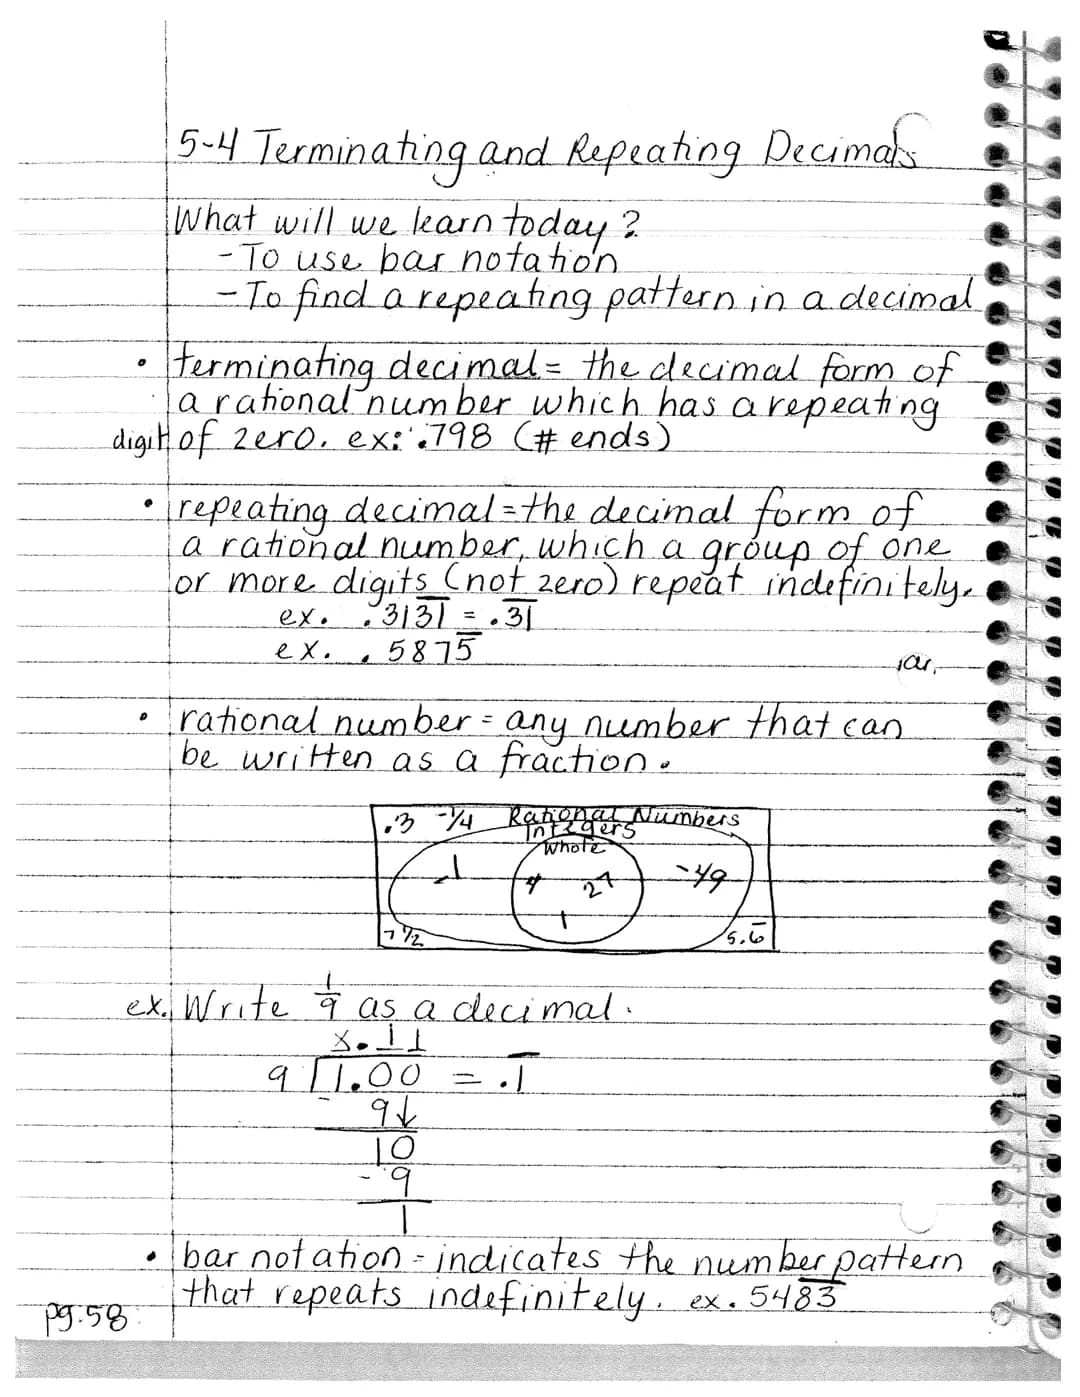 5-4 Terminating and Repeating Decimals
What will we learn today?
- To use bar notation
- To find a repeating pattern in a decimal
• terminating decimal = the decimal form of
a rational number which has a repeating
digit of zero. ex: .798 (# ends)
• repeating decimal = the decimal form of
a rational number, which a group of one
or more digits (not zero) repeat indefinitely.
ex. .313̅1̅ = .3̅1̅
ex. .5875̅
• rational number = any number that can
be written as a fraction.
.3 -1/4 Rational Numbers
Integers
Whole
-1 4 27 -49
1
7 1/2 5.6̅
ex. Write 1/9 as a decimal.
x.11
9 1.00 = .1̅
- 9↓
10
- 9
1
• bar notation = indicates the number pattern
that repeats indefinitely. ex. 548̅3̅
pg.58